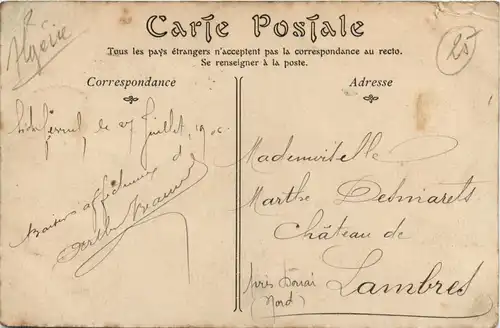 Algérie
25
Carte Postale
Tous les pays étrangers n'acceptent pas la correspondance au recto.
Se renseigner à la poste.
Correspondance
le 27 juillet, 190
Baisers affectueux d
Adresse
Mademoiselle
Marthe Desmarets
Château de
Lambres
(près Douai
Nord)